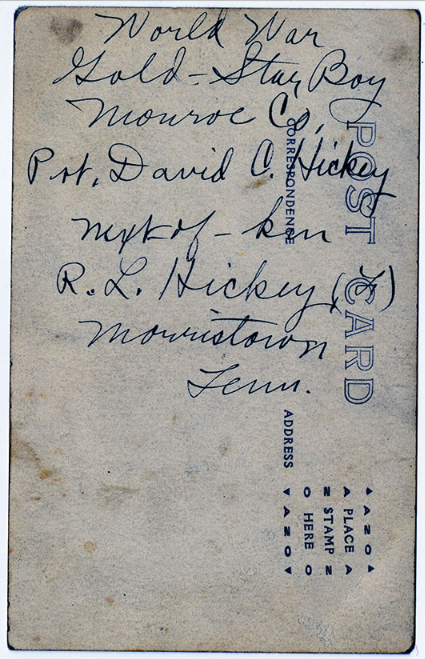 World War
Gold-Star Boy
Monroe Co,
Pvt. David C. Hickey
next of-kin
R. L. Hickey,
Morristown
Tenn.
POST CARD
CORRESPONDENCE
ADDRESS
AZO
PLACE
STAMP
HERE
AZO